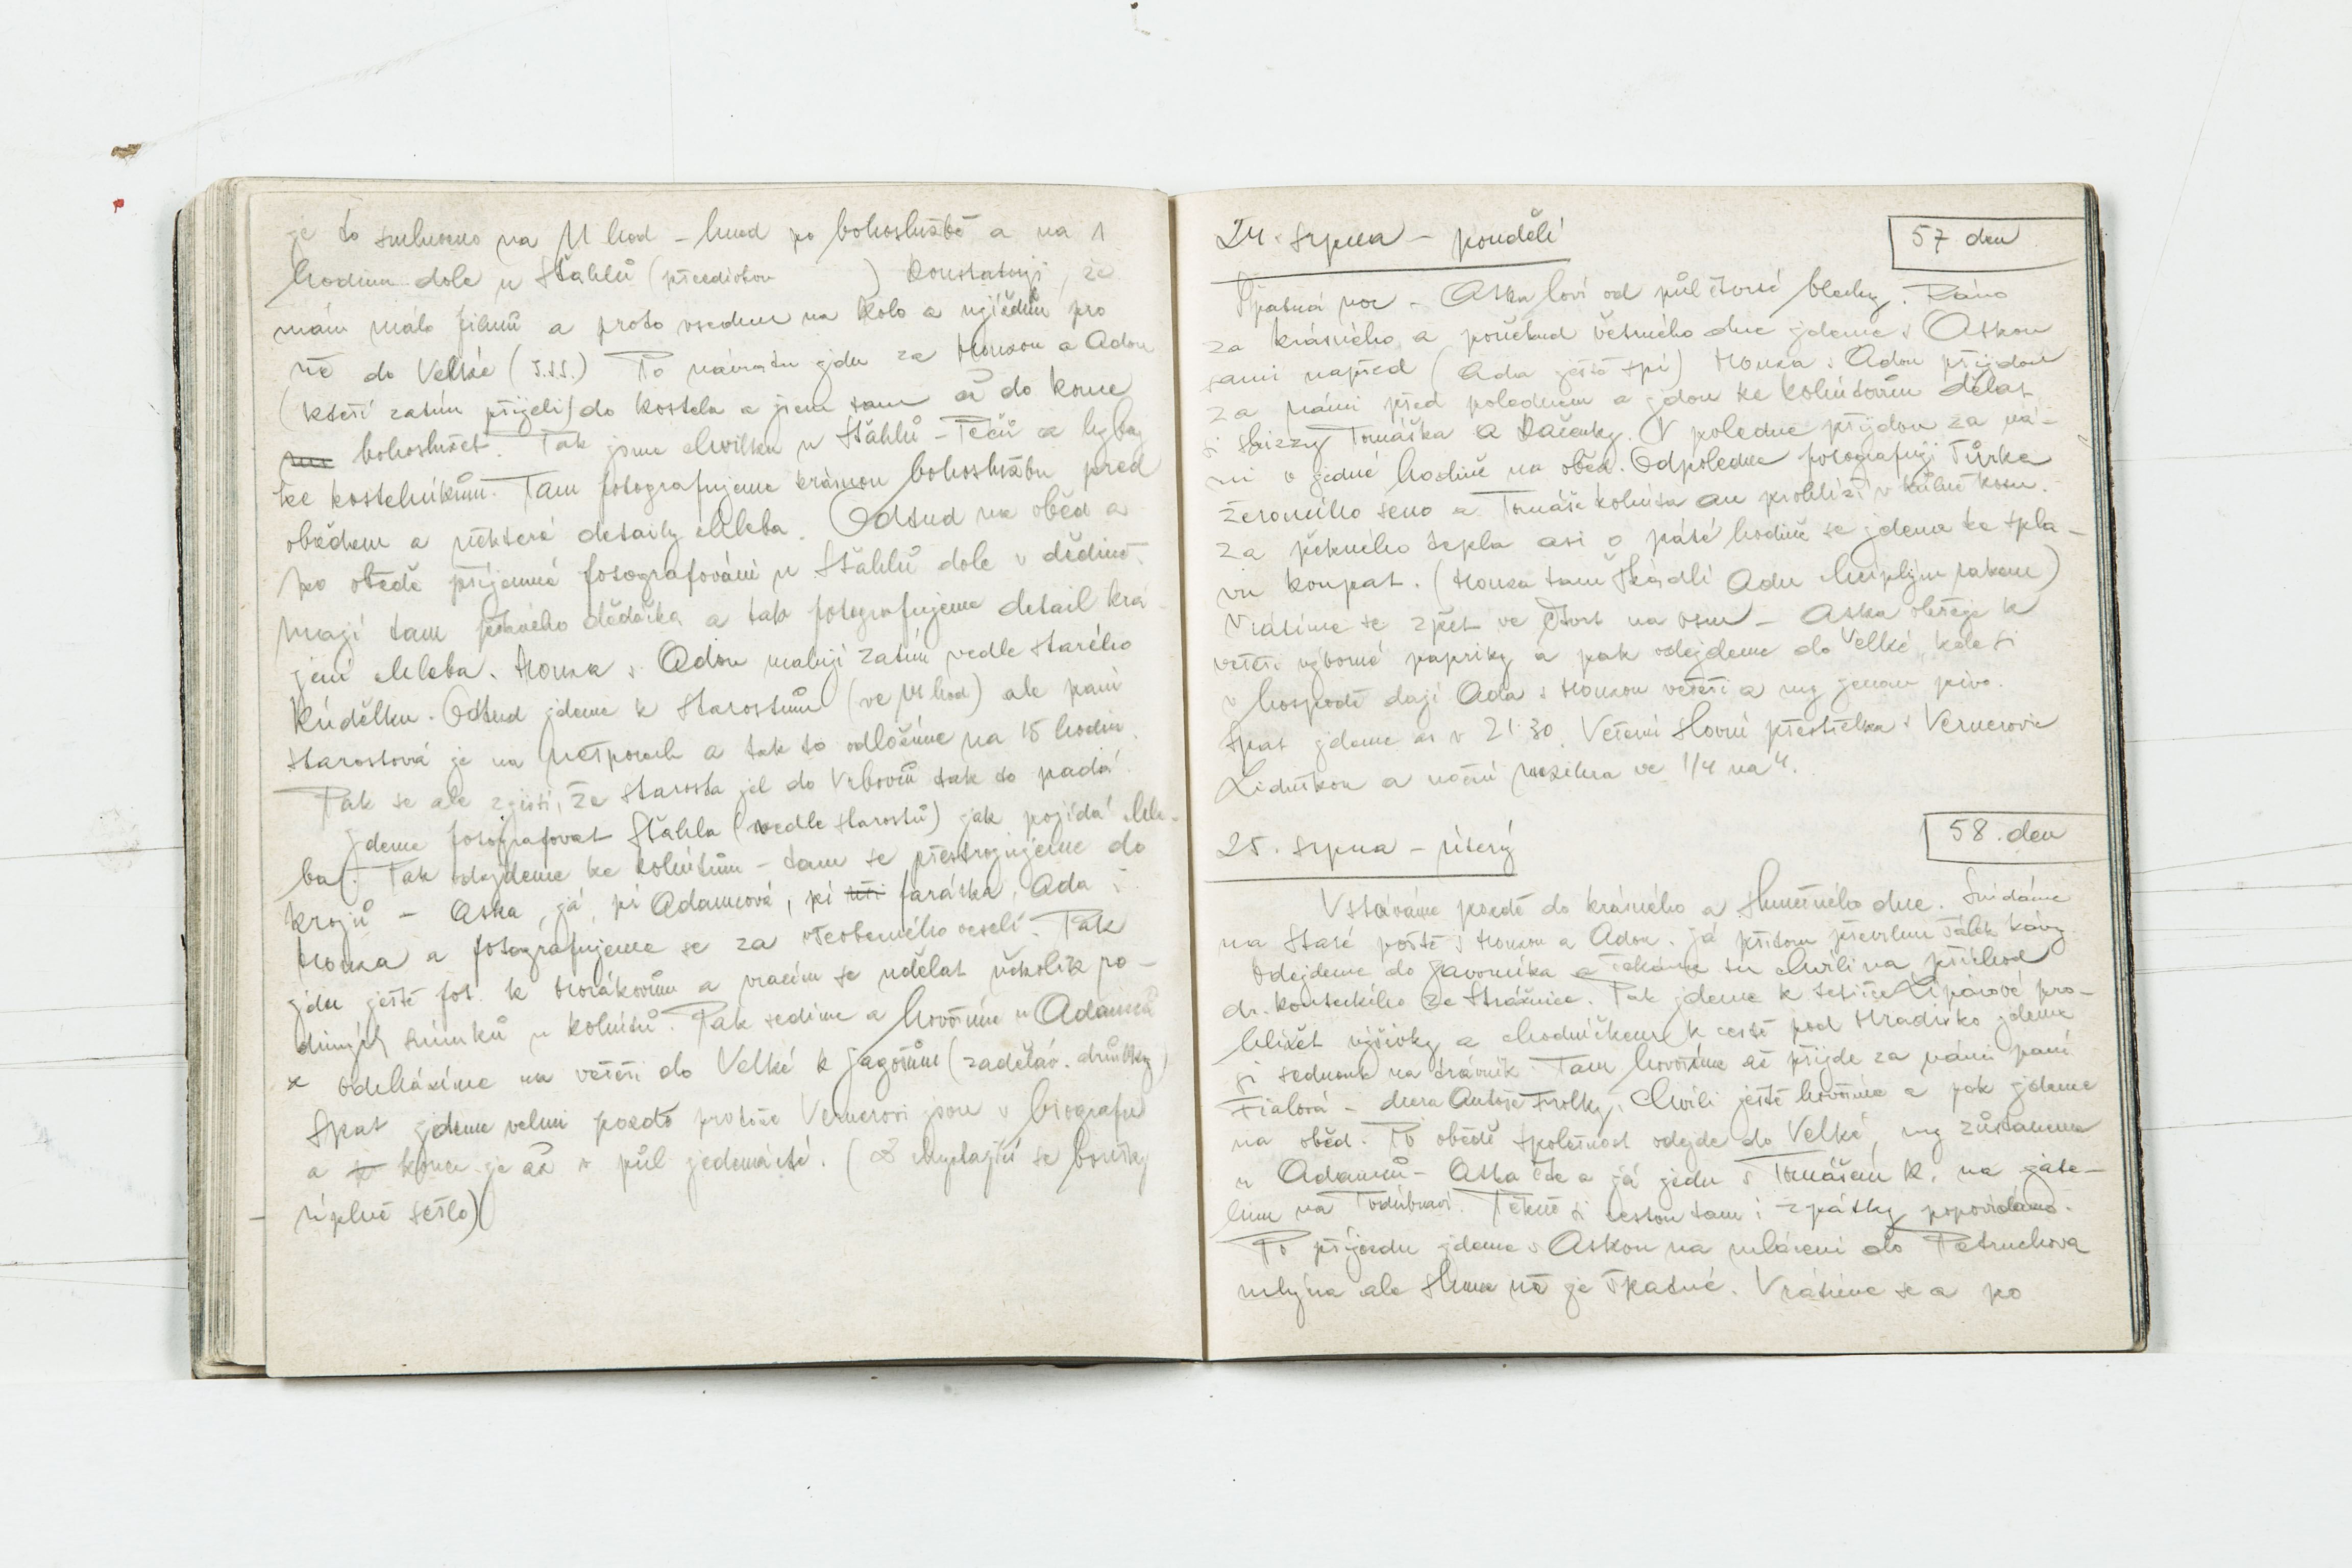 je to smluveno na 11 hod – hned po bohoslužbě a na 1
hodinu dole u Šťáhlů ( ) Konstatuji, že
mám málo filmů a proto vsednu na kolo a ujíždím pro
ně do Velké (J.S.S.) Po návratu jdu za Honzou a Adou
(kteří zatím přijeli) do kostela a jsem tam až do konce
bohoslužeb. Pak jsme chvilku u Šťáhlů – Péčů a
ke kostelníkům. Tam fotografujeme krásnou bohoslužbu před
obědem a některé detaily chleba. Odtud na oběd a
po obědě příjemné fotografování u Šťáhlů dole v dědině.
Mají tam pěkného dědečka a tak fotografujeme detail krá-
jení chleba. Honza s Adou malují zatím vedle starého
Kúdělku. Odtud jdeme k starostům (ve hod) ale paní
starostová je na nešporách a tak to odložíme na 15 hodin.
Pak se ale zjistí, že starosta jel do Vrbovců tak to padá.
Jdeme fotografovat Šťáhla (vedle starostů) jak pojídá chle-
ba. Pak odejdeme ke Kohútům – tam se přestrojujeme do
krojů – Aska, já, pí Adamcová, pí farářka, Ada i
Honza a fotografujeme se za všeobecného veselí. Pak
jdu ještě fot. k Horákovům a vracím se udělat několik ro-
dinných snímků u Kohútů. Pak sedíme a hovoříme u Adamců
a odcházíme na večeři do Velké k Jagošům (zaděláv. drůbky)
Spat jdeme velmi pozdě protože Vernerovi jsou v biografu
a konec je až v půl jedenácté. ( se bouřky
úplně sešlo)
24. srpna – pondělí
57 den
Špatná noc – Aska loví od půl čtvrté blechy. Ráno
za krásného a poněkud větrného dne jdeme s Askou
sami napřed (Ada ještě spí) Honza s Adou přijdou
za námi před polednem a jdou ke Kohútovům dělat
si skizzy Tomáška a Kačenky. V poledne přijdou za ná-
mi v jedné hodině na oběd. Odpoledne fotografuji Tůrka
žeroucího seno a Tomáše Kohúta an prohlíží v kůlně kosu.
Za pěkného tepla asi o páté hodině se jdeme ke spla-
vu koupat. (Honza tam škádlí Adu chcíplým rakem)
Vrátíme se zpět ve čtvrt na osm – Aska obstěje k
večeři výborné papriky a pak odejdeme do Velké, kde si
v hospodě dají Ada s Honzou večeři a my jenom pivo.
Spat jdeme as v 21.30. Večerní slovní přestřelka s Vernerovic
Liduškou a noční mezihra ve 1/4 na 4.
25. srpna – úterý
58. den
Vstáváme pozdě do krásného a slunečného dne. Snídáme
na staré poště s Honzou a Adou. Já přitom převrhnu šálek kávy
Odejdeme do Javorníka a čekáme tu chvíli na příchod
dr. Kouteckého ze Strážnice. Pak jdeme k tetičce Lipárové pro-
hlížet výšivky a chodníčkem k cestě pod Hradisko jdeme
si sednout na trávník. Tam hovoříme až přijde za námi paní
Fialová – dcera Antoše Frolky. Chvíli ještě hovoříme a pak jdeme
na oběd. Po obědě společnost odejde do Velké, my zůstaneme
u Adamců – Aska čte a já jedu s Tomášem K. na jete-
linu na Podúbraví. Pěkně si cestou tam i zpátky popovídáme.
Po příjezdu jdeme s Askou na mlácení do Petruchova
mlýna ale slunce už je špatné. Vrátíme se a po